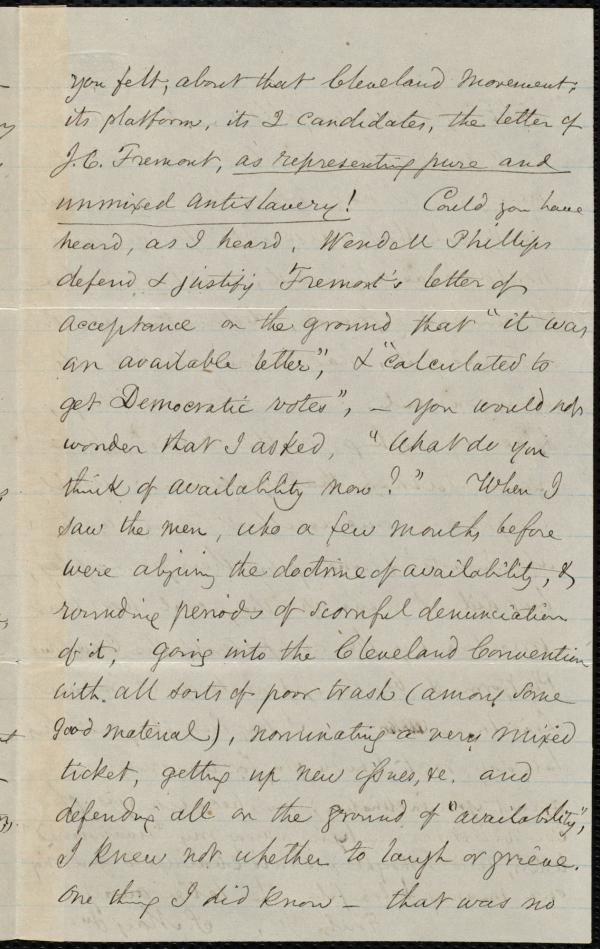 you felt, about that Cleveland Movement;
its platform, its 2 candidates, the letter of
J.C. Fremont, as representing pure and
unmixed Antislavery! Could you have
heard, as I heard, Wendell Phillips
defend & justify Fremont's letter of
acceptance on the ground that "it was
an available letter", & "calculated to
get Democratic votes", – you would not
wonder that I asked, "What do you
think of availability now?" When I
saw the men, who a few months before
were abjuring the doctrine of availability, &
rounding periods of scornful denunciation
of it, going into the Cleveland Convention
with all sorts of poor trash (among some
good material), nominating a very mixed
ticket, getting up new issues, &c. and
defending all on the ground of "availability",
I knew not whether to laugh or grieve.
One thing I did know – that was no